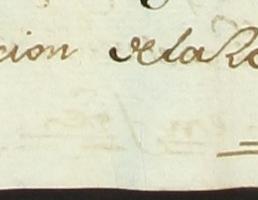 cion delaRe